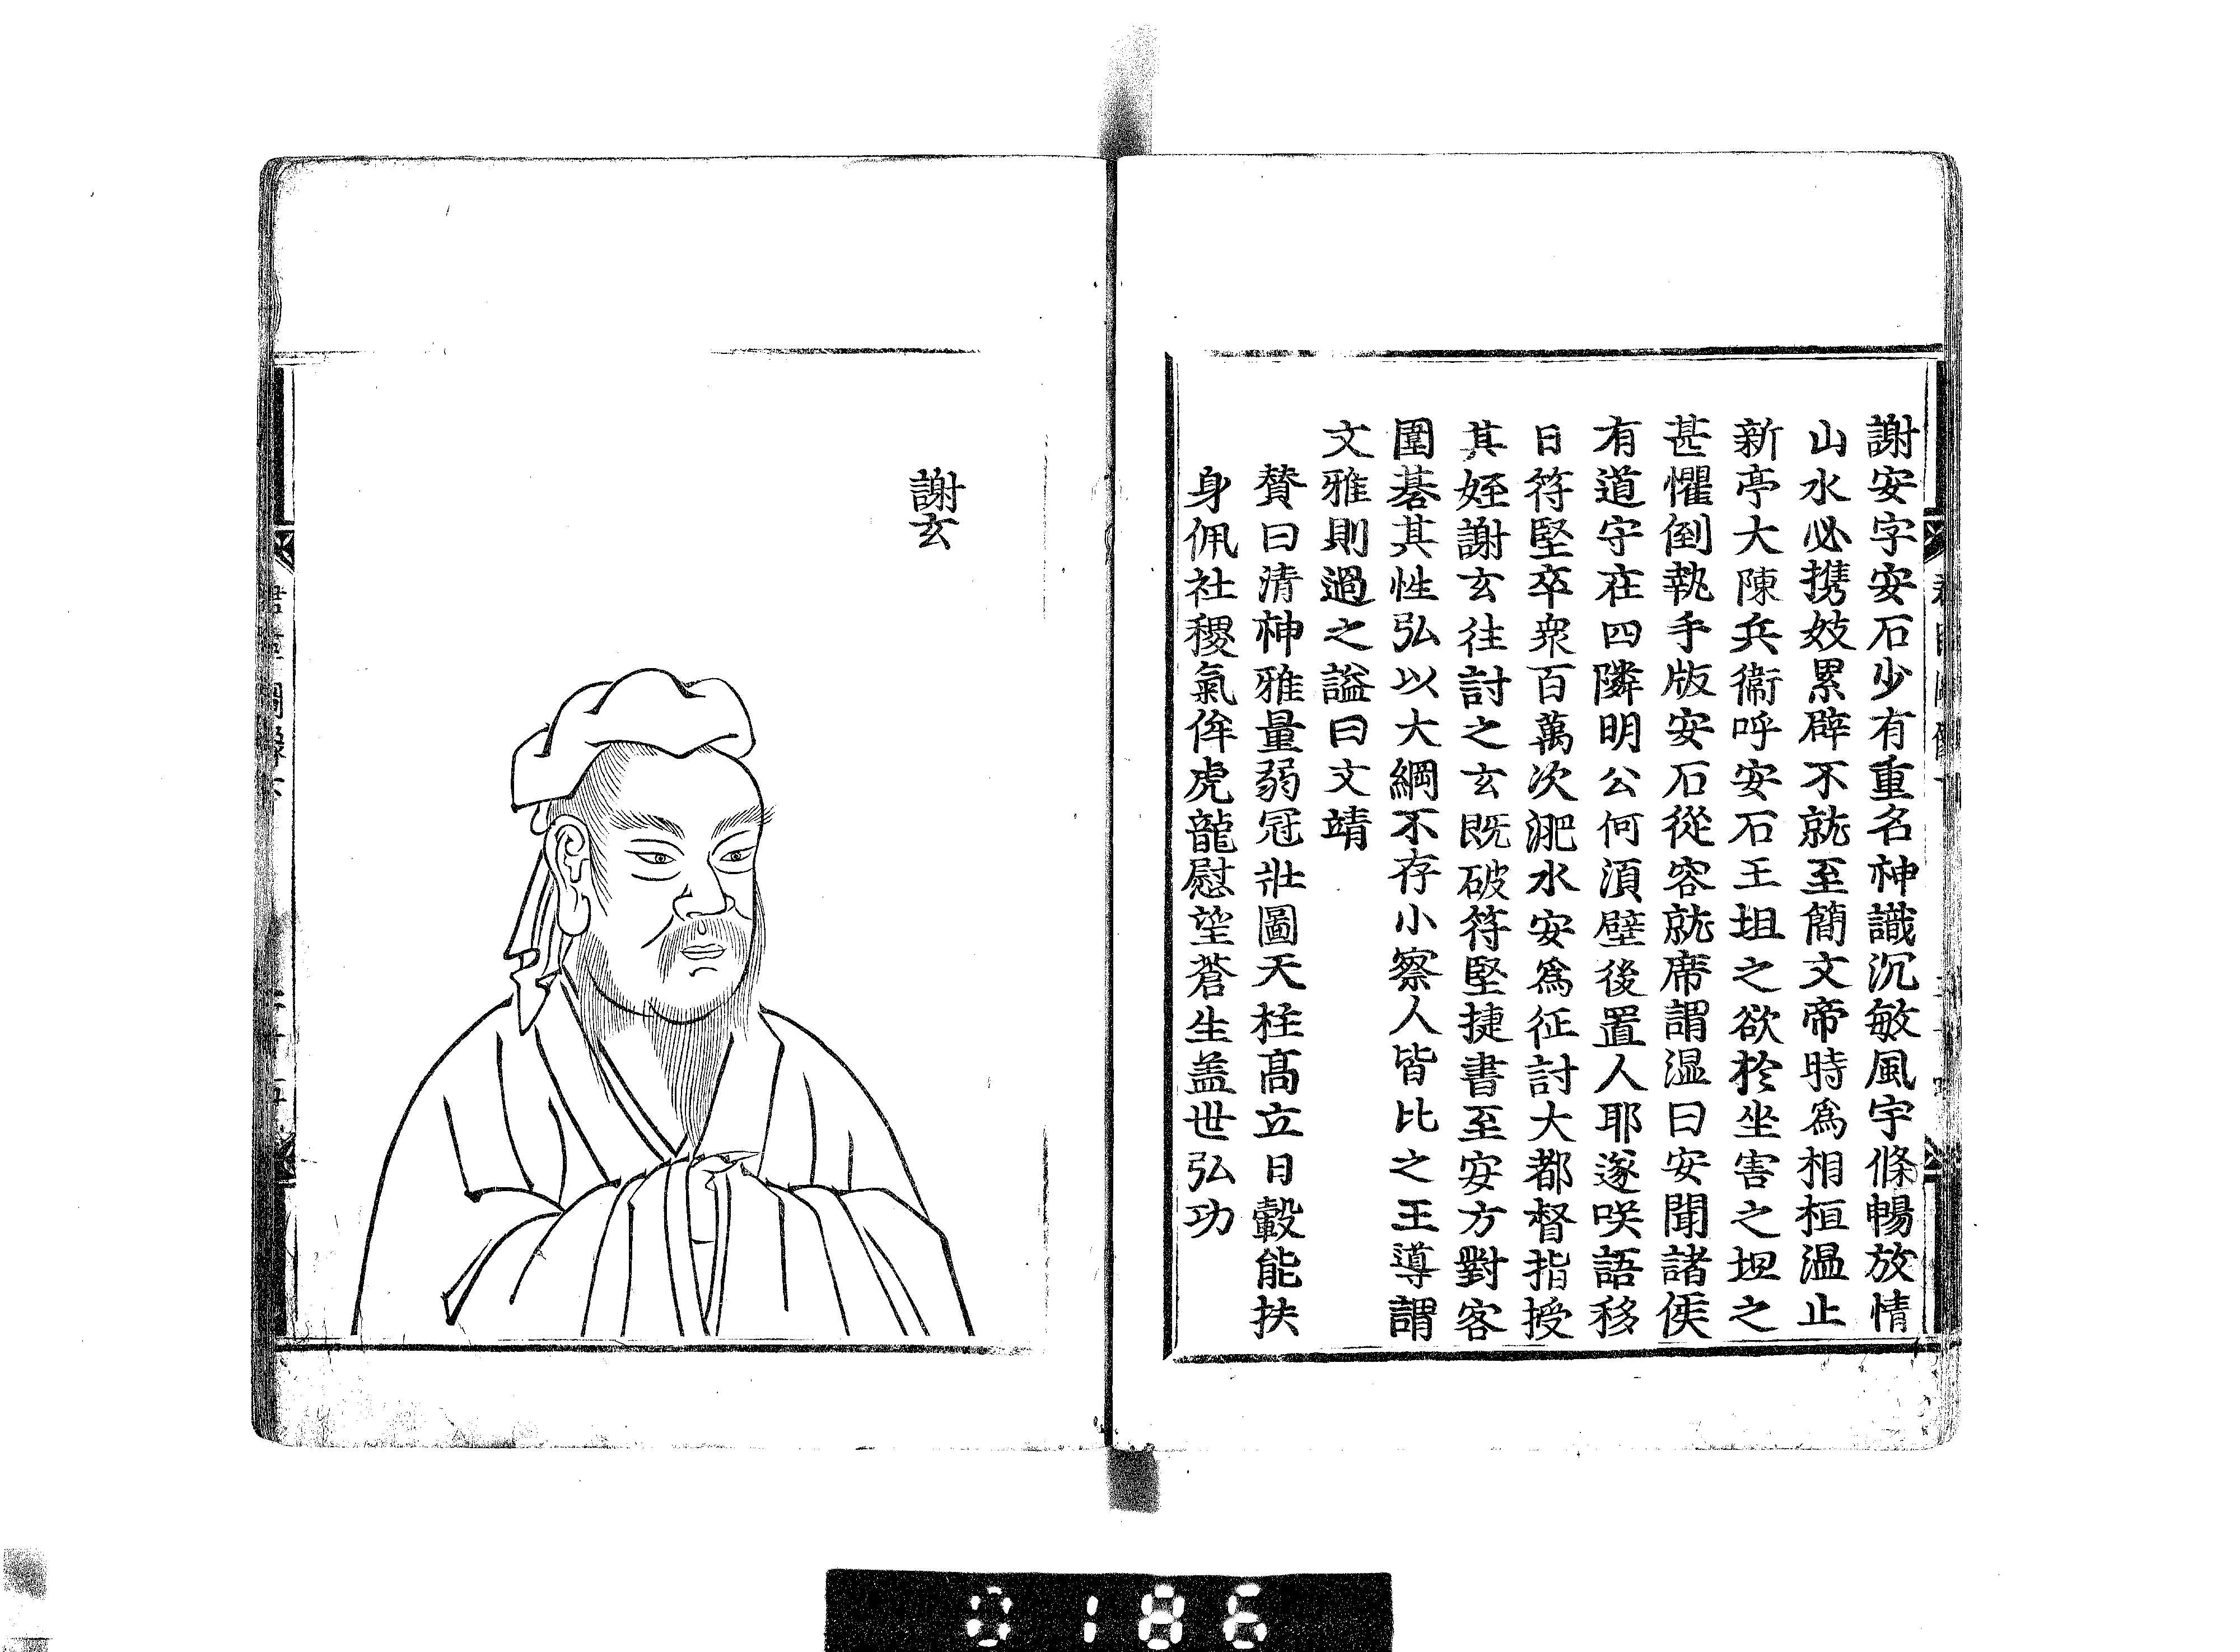 謝安字安石少有重名神識沉敏風宇條暢放情
山水必携妓累辟不就至簡文帝時爲相桓温止
新亭大陳兵衞呼安石王坦之欲於坐害之坦之
甚懼倒執手版安石從容就席謂温曰安聞諸侯
有道守在四隣明公何湏壁後置人耶遂咲語移
日符堅卒衆百萬次淝水安爲征討大都督指授
其姪謝玄往討之玄既破符堅捷書至安方對客
圍棊其性弘以大綱不存小察人皆比之王導謂
文雅則過之謚曰文靖
賛曰清神雅量弱冠壯圖天柱髙立日轂能扶
身佩社稷氣侔虎龍慰望蒼生盖世弘功
謝玄
0186